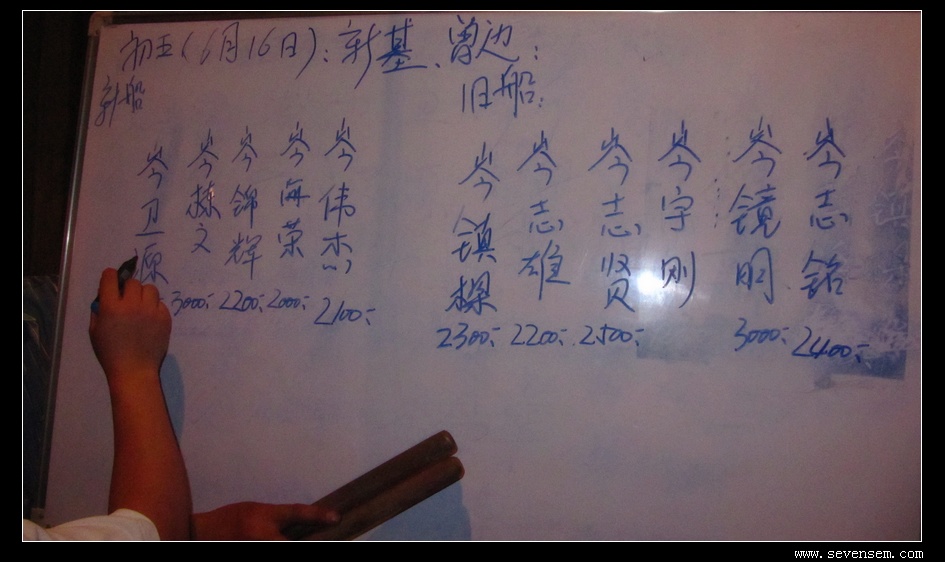 初五(6月16日):新基、曾边:
新船
旧船:
岑卫源
岑栋文
岑锦辉
岑海荣
岑伟杰
3000:
2200:
2000:
2100:
岑镇操
岑志雄
岑志贤
岑宇刚
岑镜明
岑志铭
2300:
2200:
2500:
3000:
2400:
www.sevensem.com